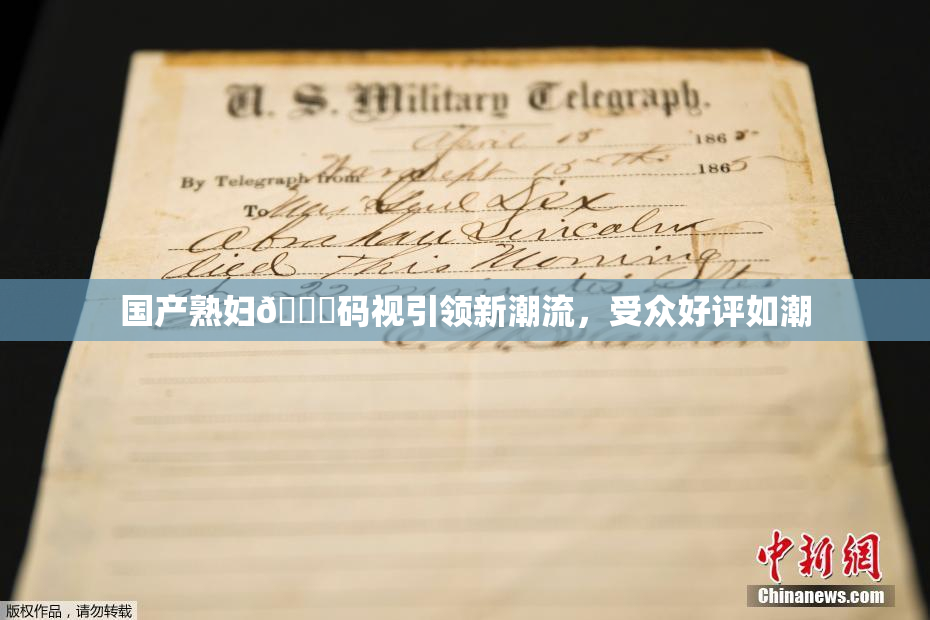 U. S. Military Telegraph.
April 15 1865
By Telegraph from War Dept 15th 1865
To Maj Genl Dix
Abraham Lincoln
died This Morning
at 22 minutes after
国产熟妇ð码视引领新潮流，受众好评如潮
E. M. Stanton
中新网
Chinanews.com
版权作品，请勿转载